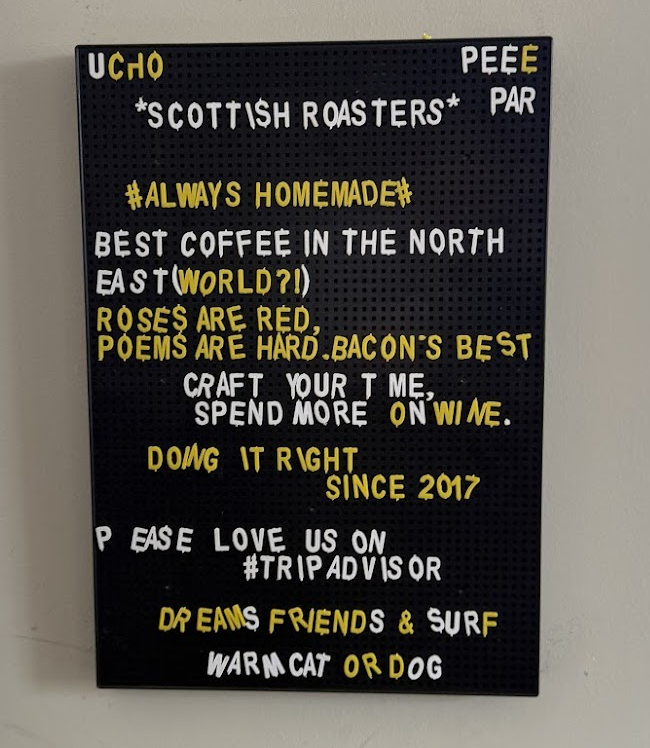 UCHO PEEE
*SCOTTISH ROASTERS* PAR
#ALWAYS HOMEMADE#
BEST COFFEE IN THE NORTH
EAST(WORLD?!)
ROSES ARE RED,
POEMS ARE HARD.BACON'S BEST
CRAFT YOUR T ME,
SPEND MORE ON WINE.
DOING IT RIGHT
SINCE 2017
P EASE LOVE US ON
#TRIPADVISOR
DREAMS FRIENDS & SURF
WARM CAT OR DOG